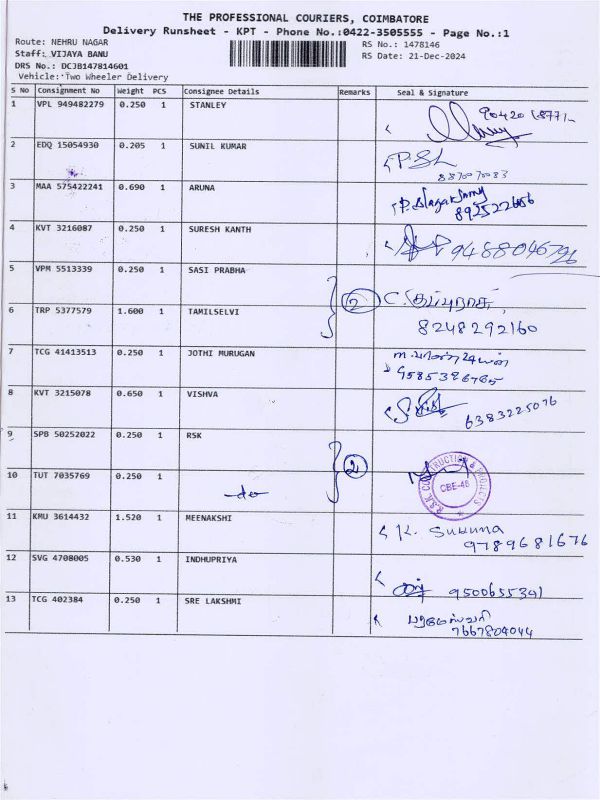 THE PROFESSIONAL COURIERS, COIMBATORE
Delivery Runsheet - KPT - Phone No.:0422-3505555 - Page No.:1
Route: NEHRU NAGAR
RS No.: 1478146
Staff: VIJAYA BANU
RS Date: 21-Dec-2024
DRS No.: DCJB147814601
Vehicle: Two Wheeler Delivery
S No Consignment No Weight PCS Consignee Details Remarks Seal & Signature
1 VPL 949482279 0.250 1 STANLEY
2 EDQ 15054930 0.205 1 SUNIL KUMAR P.SL
8870070083
3 MAA 575422241 0.690 1 ARUNA
4 KVT 3216087 0.250 1 SURESH KANTH 9488046796
5 VPM 5513339 0.250 1 SASI PRABHA
2
6 TRP 5377579 1.600 1 TAMILSELVI 8248292160
7 TCG 41413513 0.250 1 JOTHI MURUGAN
9585326765
8 KVT 3215078 0.650 1 VISHVA 6383225076
9 SPB 50252022 0.250 1 RSK
2
R.S.K CONSTRUCTION & PROJECTS
CBE-46
10 TUT 7035769 0.250 1
-do-
11 KMU 3614432 1.520 1 MEENAKSHI K. Suguna
9789681676
12 SVG 4708005 0.530 1 INDHUPRIYA
9500655341
13 TCG 402384 0.250 1 SRE LAKSHMI
7667804044